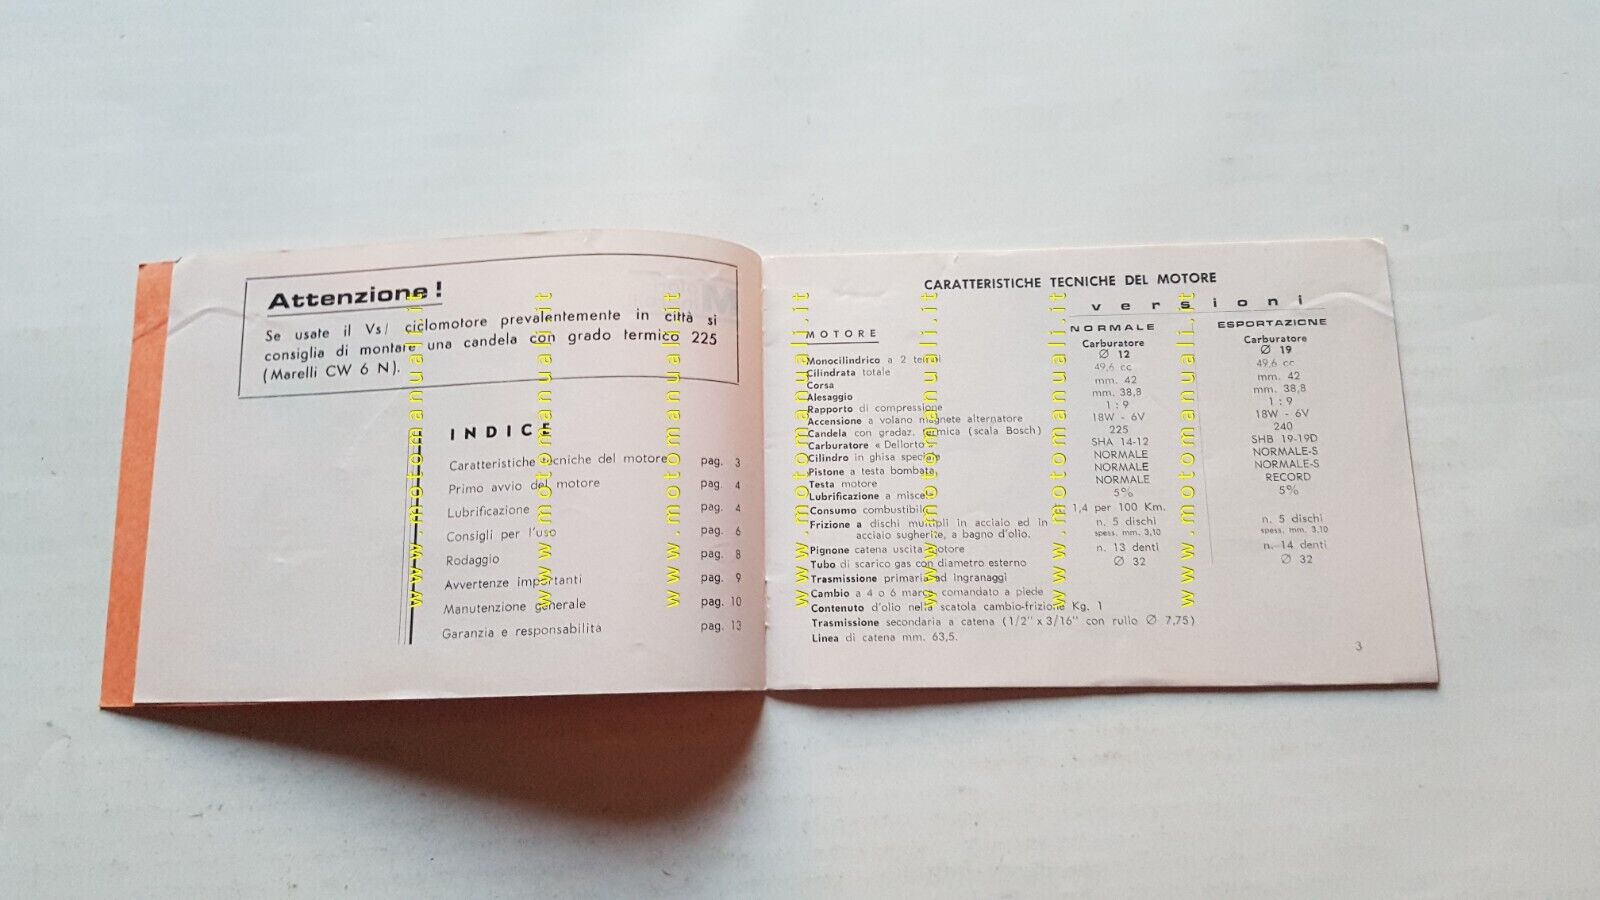 Attenzione!
Se usate il Vs/ ciclomotore prevalentemente in città si
consiglia di montare una candela con grado termico 225
(Marelli CW 6 N).
INDICE
Caratteristiche tecniche del motore pag. 3
Primo avvio del motore pag. 4
Lubrificazione pag. 4
Consigli per l'uso pag. 6
Rodaggio pag. 8
Avvertenze importanti pag. 9
Manutenzione generale pag. 10
Garanzia e responsabilita pag. 13
CARATTERISTICHE TECNICHE DEL MOTORE
versioni
MOTORE NORMALE ESPORTAZIONE
Carburatore Carburatore
Ø 12 Ø 19
Monocilindrico a 2 tempi
Cilindrata totale 49,6 cc 49,6 cc
Corsa mm. 42 mm. 42
Alesaggio mm. 38,8 mm. 38,8
Rapporto di compressione 1 : 9 1 : 9
Accensione a volano magnete alternatore 18W - 6V 18W - 6V
Candela con gradaz. termica (scala Bosch) 225 240
Carburatore « Dellorto» SHA 14-12 SHB 19-19D
Cilindro in ghisa speciale NORMALE NORMALE-S
Pistone a testa bombata NORMALE NORMALE-S
Testa motore NORMALE RECORD
Lubrificazione a miscela 5% 5%
Consumo combustibile 1,4 per 100 Km.
Frizione a dischi multipli in acciaio ed in n. 5 dischi n. 5 dischi
acciaio sugherite, a bagno d'olio. spess. mm. 3,10 spess. mm. 3,10
Pignone catena uscita motore n. 13 denti n. 14 denti
Tubo di scarico gas con diametro esterno Ø 32 Ø 32
Trasmissione primaria ad ingranaggi
Cambio a 4 o 6 marce comandato a piede
Contenuto d'olio nella scatola cambio-frizione Kg. 1
Trasmissione secondaria a catena (1/2" x 3/16" con rullo Ø 7,75)
Linea di catena mm. 63,5.
3
www.motomanuali.it
www.motomanuali.it
www.motomanuali.it
www.motomanuali.it
www.motomanuali.it
www.motomanuali.it
www.motomanuali.it